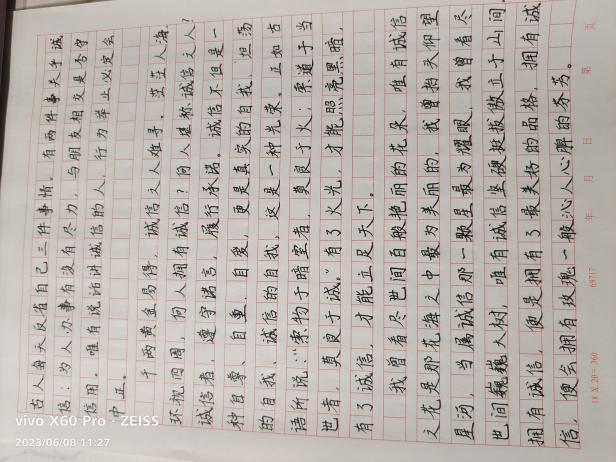 古人每天反省自己三件事情。有两件事关乎诚
信：为人办事有没有尽力，与朋友相交是否守
信用。唯有说话讲诚信的人，行为举止必定会
中正。
千两黄金易得，诚信之人难寻。茫茫人海，
环视四周，何人拥有诚信？何人堪称诚信之人？
诚信者，遵守诺言，履行承诺。诚信不但是一
种自尊、自重、自爱，更是真实的自我，坦荡
的自我、诚信的自我，这是一种光荣。正如古
语所说：“索物于暗室者，莫良于火；索道于当
世者，莫良于诚。”有了火光，才能照亮黑暗，
有了诚信，才能立足天下。
我曾看尽世间百般艳丽的花朵，唯有诚信
之花是那花海之中最为美丽的，我曾抬头仰望
星河，当属诚信那一颗星最为耀眼，我曾看尽
世间巍巍大树，唯有诚信坚硬挺拔傲立于山间。
拥有诚信，便是拥有了最美好的品格，拥有诚
信，便会拥有玫瑰一般沁人心脾的芬芳。
18 X 20 = 360
69717
年 月 日 页
vivo X60 Pro · ZEISS
2023/06/08 11:27